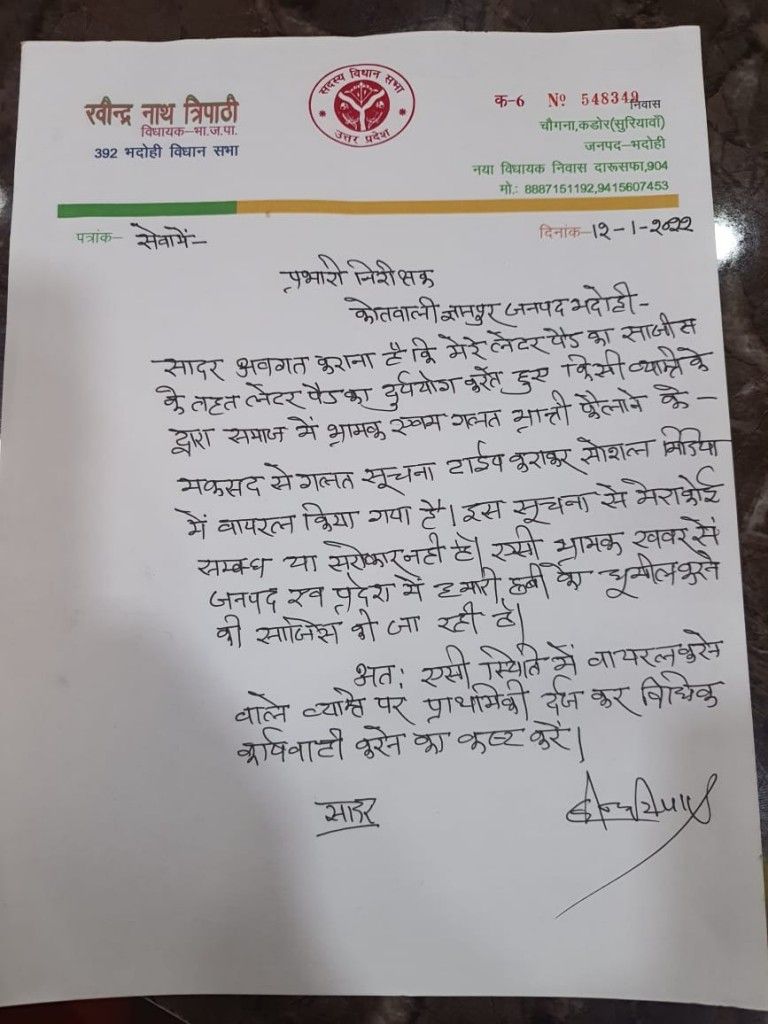 रवीन्द्र नाथ त्रिपाठी
विधायक-भा.ज.पा.
392 भदोही विधान सभा
सदस्य विधान सभा
उत्तर प्रदेश
क-6 Nº 548349
निवास
चौगना,कडोर(सुरियावाँ)
जनपद-भदोही
नया विधायक निवास दारूसफा,904
मो.: 8887151192,9415607453
पत्रांक- सेवामें-
दिनांक-12-1-2022
प्रभारी निरीक्षक
कोतवाली ज्ञानपुर जनपद भदोही-
सादर अवगत कराना है कि मेरे लेटर पैड का साजीस
के तहत लेटर पैड का दुर्पयोग करते हुए किसी व्यक्ति के
द्वारा समाज में भ्रामक एवम गलत भ्रान्ती फैलाने के -
मकसद से गलत सूचना टाईप कराकर सोशल मिडिया
में वायरल किया गया है। इस सूचना से मेरा कोई
सम्बन्ध या सरोकार नही है। एसी भ्रामक खबर से
जनपद एव प्रदेश में हमारी छबी को धूमील करने
की साजिस की जा रही है।
अत: एसी स्थिति में वायरल करने
वाले व्यक्ति पर प्राथमिकी दर्ज कर विधिक
कार्यवाही करने का कष्ट करें।
सादर